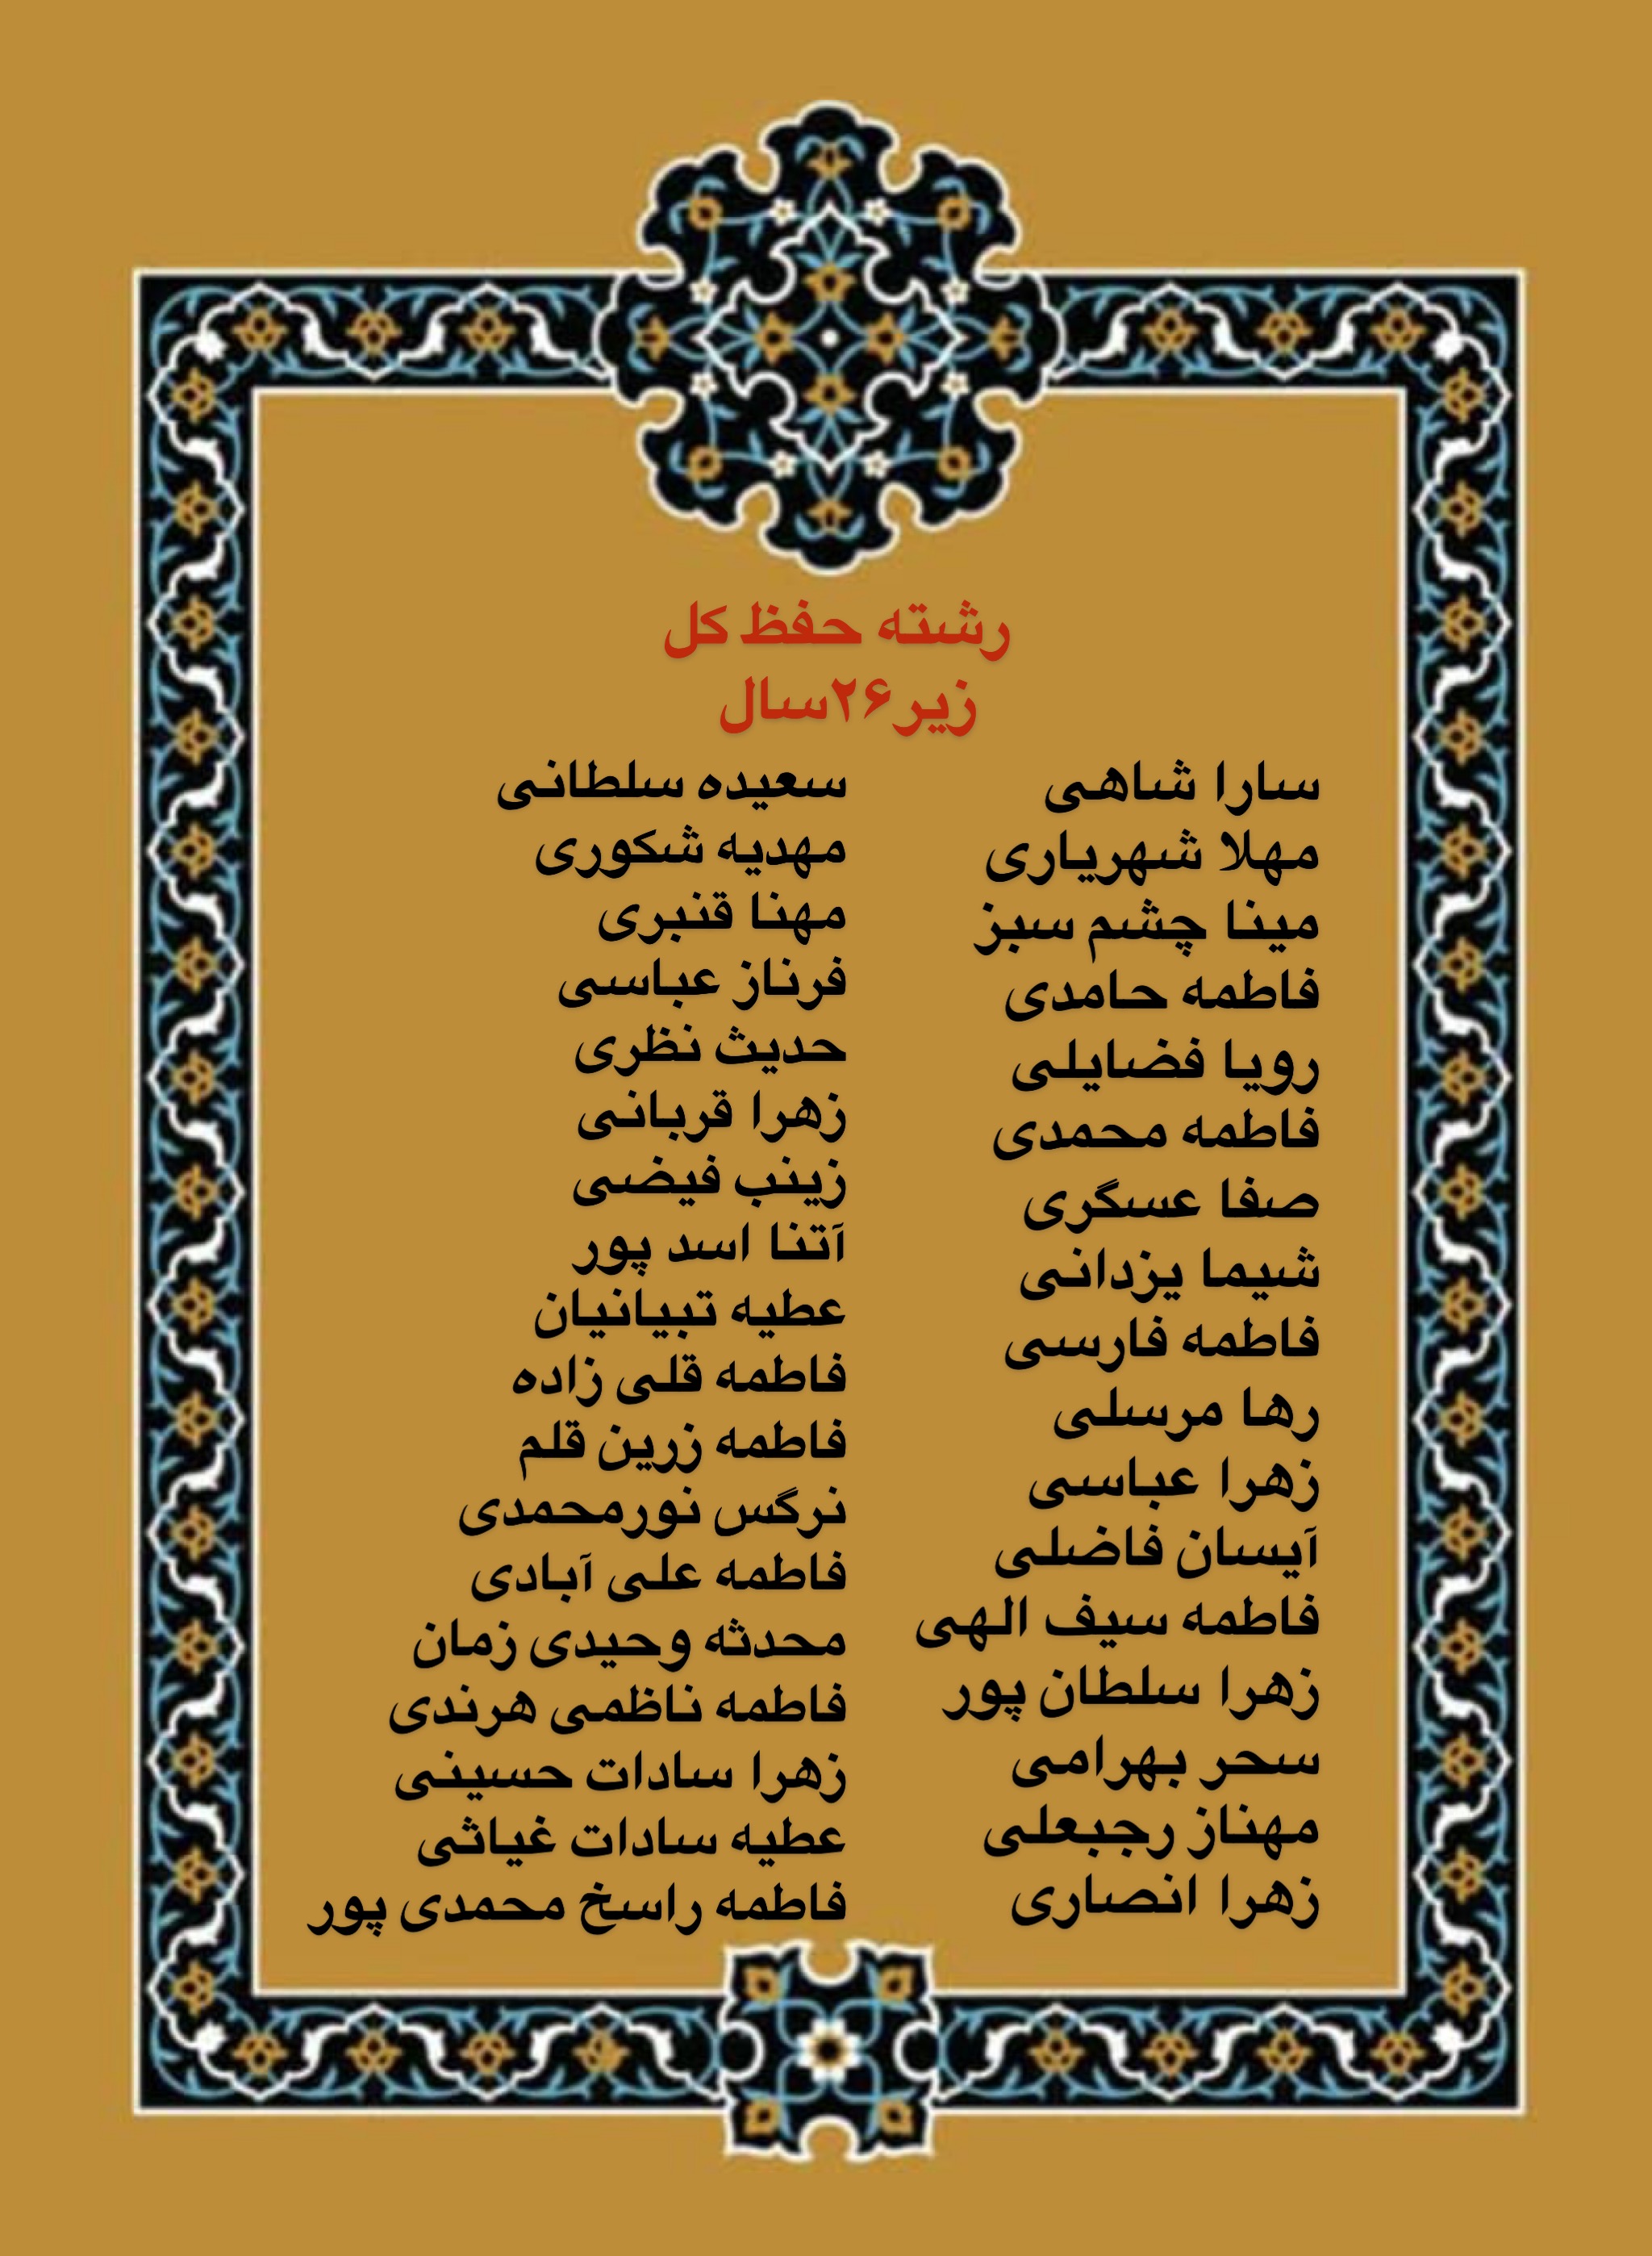 رشته حفظ کل
زیر۲۶سال
سارا شاهی
مهلا شهریاری
مینا چشم سبز
فاطمه حامدی
رویا فضایلی
فاطمه محمدی
صفا عسگری
شیما یزدانی
فاطمه فارسی
رها مرسلی
زهرا عباسی
آیسان فاضلی
فاطمه سیف الهی
زهرا سلطان پور
سحر بهرامی
مهناز رجبعلی
زهرا انصاری
سعیده سلطانی
مهدیه شکوری
مهنا قنبری
فرناز عباسی
حدیث نظری
زهرا قربانی
زینب فیضی
آتنا اسد پور
عطیه تبیانیان
فاطمه قلی زاده
فاطمه زرین قلم
نرگس نورمحمدی
فاطمه علی آبادی
محدثه وحیدی زمان
فاطمه ناظمی هرندی
زهرا سادات حسینی
عطیه سادات غیاثی
فاطمه راسخ محمدی پور